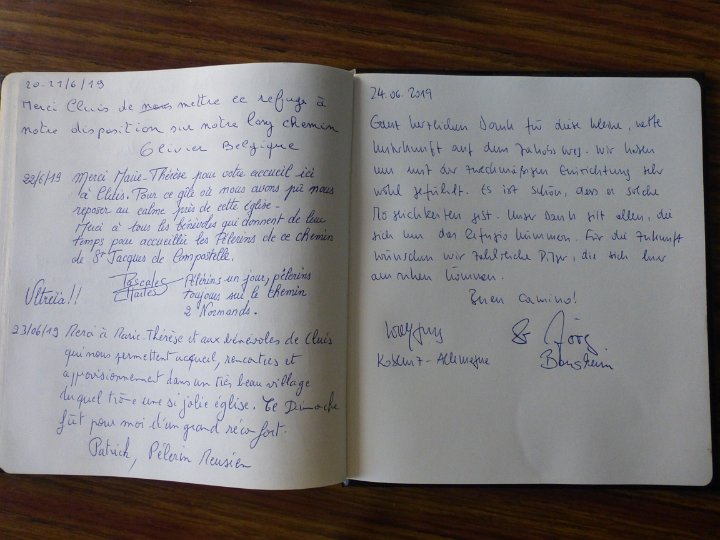 20-21/6/19
Merci Cluis de nous mettre ce refuge à
notre disposition sur notre long chemin
Olivier Belgique
22/6/19 Merci Marie-Thérèse pour votre accueil ici
à Cluis. Pour ce gîte où nous avons pû nous
reposer au calme près de cette église.
Merci à tous les bénévoles qui donnent de leur
temps pour accueillir les Pèlerins de ce chemin
de St Jacques de Compostelle.
Ultreïa!! Pèlerins un jour, pèlerins
toujours sur le chemin
2 Normands.
23/06/19 Merci à Marie-Thérèse et aux bénévoles de Cluis
qui nous permettent accueil, rencontres et
approvisionnement dans un très beau village
duquel trône une si jolie église. Ce Dimanche
fût pour moi d'un grand réconfort.
Patrick, Pèlerin
24.06.2019
Ganz herzlichen Dank für diese kleine, nette
Unterkunft auf dem Jakobsweg. Wir haben
uns mit der zweckmäßigen Einrichtung sehr
wohl gefühlt. Es ist schön, dass es solche
Möglichkeiten gibt. Unser Dank gilt allen, die
sich um das Refugio kümmern. Für die Zukunft
wünschen wir zahlreiche Pilger, die sich hier
ausruhen können.
Buen Camino!
Wolfgang & Jörg
Allemagne